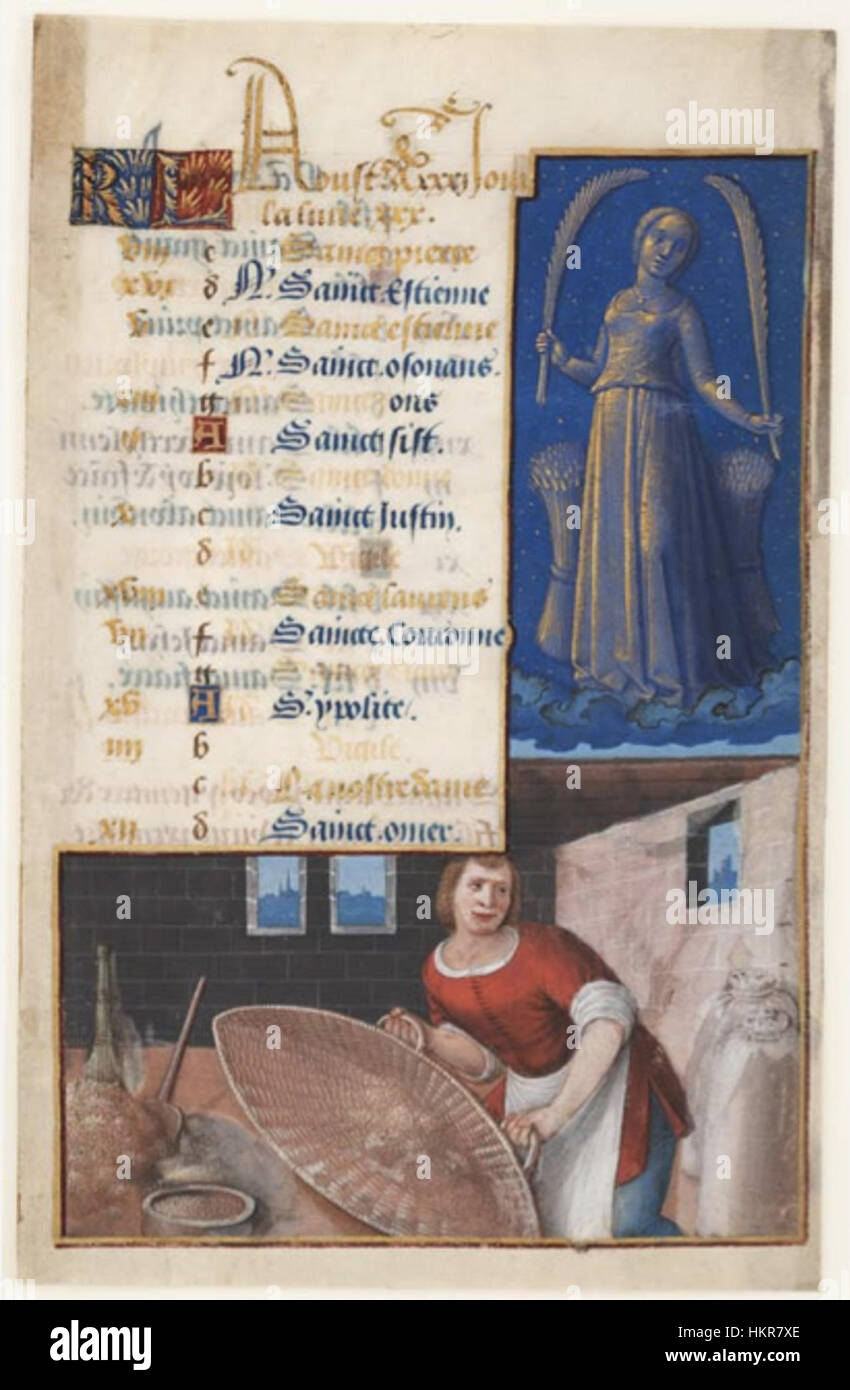 Aoust A xxxi Jours
la lune xxx.
viii c Sainct pierre
xvi d N. Sainct Estienne
v e Saincte estienne
f N. Sainct osouans.
g ons
A Sainct sist.
b
x c Sainct Justin.
d Vigile
xviii e Sainct laurens
vii f Saincte Couronne
g
xv A S. ypolite.
iiii b Vigile.
c La nostre dame
xii d Sainct omer.
alamy
Image ID: HKR7XE
www.alamy.com